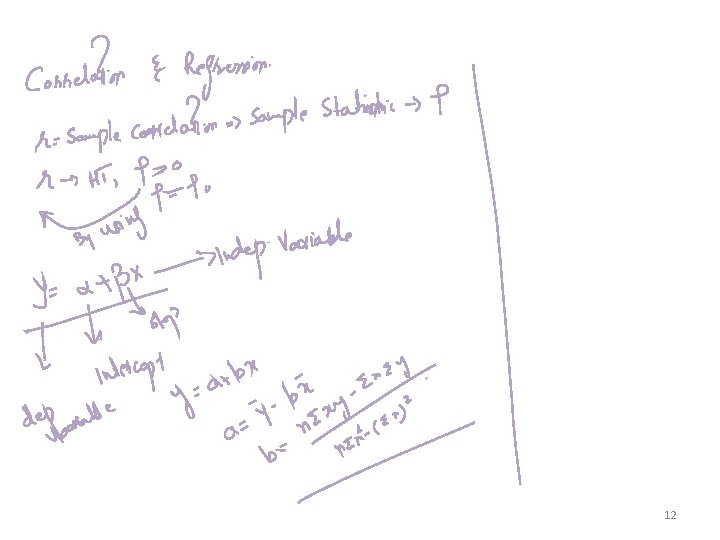 Correlation & Regression.
r = Sample Correlation => Sample Statistic → ρ
r → HT, ρ = 0
ρ = ρ₀
By using
y = α + βx → Indep Variable
Intercept
dep Variable
y = a + bx
a = ȳ - b x̄
b = nΣxy - ΣxΣy / nΣx² - (Σx)²
12